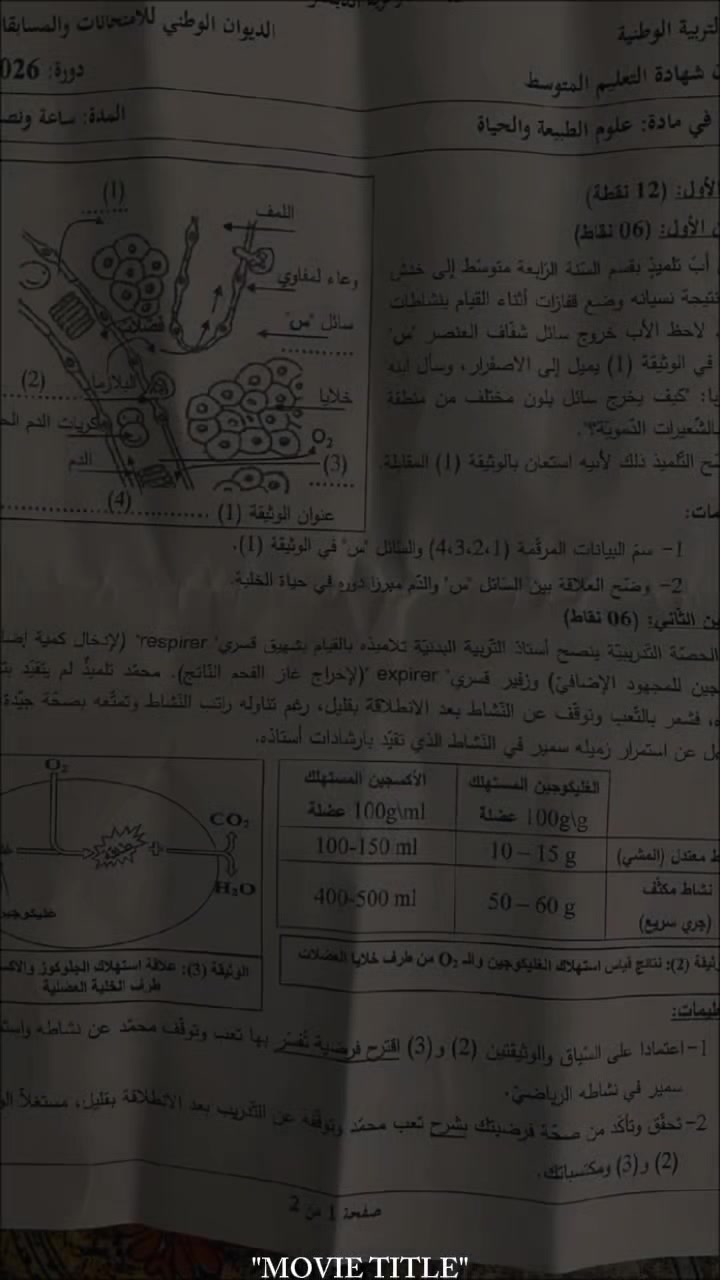 التربية الوطنية
الديوان الوطني للامتحانات والمسابقا
شهادة التعليم المتوسط
دورة: 026
في مادة: علوم الطبيعة والحياة
المدة: ساعة ونص
الأول: (12 نقطة)
الأول: (06 نقاط)
أب تلميذ بقسم السنة الرابعة متوسط إلى خدش
نتيجة نسيانه وضع قفازات أثناء القيام بنشاطات
لاحظ الأب خروج سائل شفاف العنصر "س"
في الوثيقة (1) يميل إلى الاصفرار، وسأل ابنه
"كيف يخرج سائل بلون مختلف من منطقة
بالشعيرات الدموية؟".
التلميذ ذلك لأبيه استعان بالوثيقة (1) المقابلة.
(1)
اللمف
وعاء لمفاوي
سائل "س"
فضلات
(2)
البلازما
خلايا
كريات الدم الح
O₂
الدم
(3)
(4)
عنوان الوثيقة (1)
1- سمّ البيانات المرقّمة (4،3،2،1) والسائل "س" في الوثيقة (1).
2- وضّح العلاقة بين السائل "س" والدّم مبرزا دوره في حياة الخلية.
الثّاني: (06 نقاط)
الحصّة التّدريبيّة ينصح أستاذ التّربية البدنيّة تلاميذه بالقيام بشهيق قسري "respirer" (لإدخال كمية إضا
جين للمجهود الإضافيّ) وزفير قسري "expirer" (لإخراج غاز الفحم النّاتج). محمّد تلميذٌ لم يتقيّد
فشعر بالتّعب وتوقّف عن النّشاط بعد الانطلاقة بقليل، رغم تناوله راتب النّشاط وتمتّعه بصحّة جيّدة
عن استمرار زميله سمير في النّشاط الذي تقيّد بارشادات أستاذه.
الغليكوجين المستهلك 100g\g عضلة
الأكسجين المستهلك 100g\ml عضلة
معتدل (المشي) 10 – 15 g 100-150 ml
نشاط مكثّف (جري سريع) 50 – 60 g 400-500 ml
(2): نتائج قياس استهلاك الغليكوجين والـ O₂ من طرف خلايا العضلات
O₂
CO₂
H₂O
غليكوجين
الوثيقة (3): علاقة استهلاك الجلوكوز والاكس
طرف الخلية العضلية
1- اعتمادا على السّياق والوثيقتين (2) و(3) اقترح فرضية تُفسّر بها تعب وتوقّف محمّد عن نشاطه واست
سمير في نشاطه الرياضيّ.
2- تحقّق وتأكّد من صحّة فرضيتك بشرح تعب محمّد وتوقّفه عن التّدريب بعد الانطلاقة بقليل، مستغلاّ الو
(2) و(3) ومكتسباتك.
صفحة 1 من 2
"MOVIE TITLE"